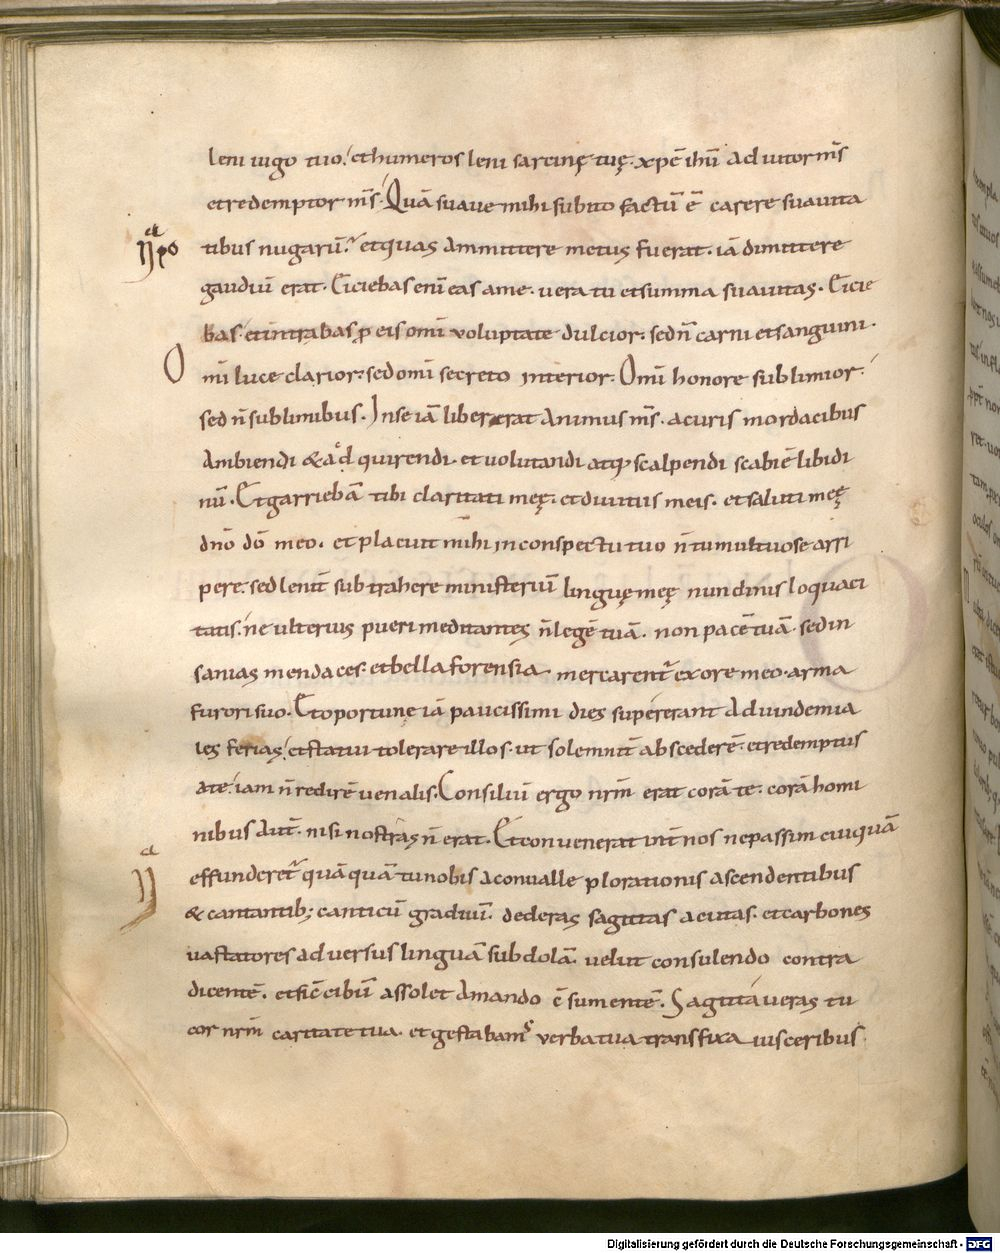 leni iugo tuo. et humeros leni sarcinę tuę. xpē ihū adiutor m̄s
et redemptor m̄s. Quā suaue mihi subito factū ē carere suauita
tibus nugarū. et quas ammittere metus fuerat. iā dimittere
gaudiū erat. Eiciebas enī eas a me. uera tu et summa suauitas. Eicie
bas. et intrabas ꝓ eis omī uoluptate dulcior. sed n̄ carni et sanguini.
O
mī luce clarior. sed omī secreto interior. Omī honore sublimior.
sed n̄ sublimibus. In se iā liber erat animus m̄s. a curis mordacibus
ambiendi & adquirendi. et uolutandi atq; scalpendi scabiē libidi
nū. Et garriebā tibi claritati meę. et diuitiis meis. et saluti meę
dn̄o dō meo. et placuit mihi in conspectu tuo n̄ tumultuose arri
pere. sed lenit̄ subtrahere ministeriū linguę meę nundinis loquaci
tatis. ne ulterius pueri meditantes n̄ legē tuā. non pacē tuā. sed in
sanias mendaces. et bella forensia. mercarent̄ ex ore meo. arma
furori suo. Et oportune iā paucissimi dies supererant ad uindemia
les ferias. et statui tolerare illos. ut solemnit̄ abscederē. et redemptus
a te. iam n̄ redirē uenalis. Consiliū ergo nr̄m erat corā te. corā homi
nibus aut̄. nisi nostras n̄ erat. Et conuenerat int̄ nos ne passim cuiquā
effunderet̄ quāquā tu nobis a conualle plorationis ascendentibus
& cantantib; canticū graduū. dederas sagittas acutas. et carbones
uastatores aduersus linguā subdolā. uelut consulendo contra
dicentē. et sic̄ cibū assolet amando c̄sumentē. Sagittaueras tu
cor nr̄m caritate tua. et gestabam᷒ uerba tua transfixa uisceribus.
Digitalisierung gefördert durch die Deutsche Forschungsgemeinschaft - DFG